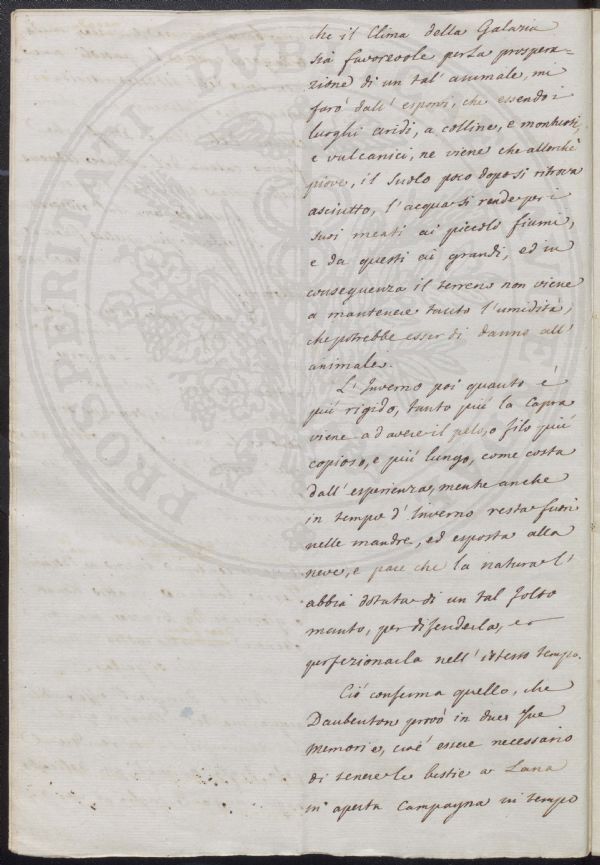 che il Clima della Galazia
sia favorevole per la prospera-
zione di un tal' animale, mi
farò dall' esporvi, che essendo i
luoghi aridi, a colline, e montuosi,
e vulcanici, ne viene che allorchè
piove, il suolo poco dopo si ritrova
asciutto, l'acqua si rende per i
suoi meati ai piccoli fiumi,
e da questi ai grandi, ed in
conseguenza il terreno non viene
a mantenere tutto l'umidità,
che potrebbe esser di danno all'
animale.
L'Inverno poi quanto è
più rigido, tanto più la Capra
viene ad avere il pelo, o filo più
copioso, e più lungo, come costa
dall' esperienza, mentre anche
in tempo d'Inverno resta fuori
nelle mandre, ed esposta alla
neve, e pare che la natura l'
abbia dotata di un tal folto
manto, per difenderla, e
perfezionarla nell' istesso tempo.
Ciò conferma quello, che
Daubenton provò in due sue
memorie, cioè essere necessario
di tenere le bestie a Lana
in aperta Campagna in tempo
PROSPERITATI PVBLICAE